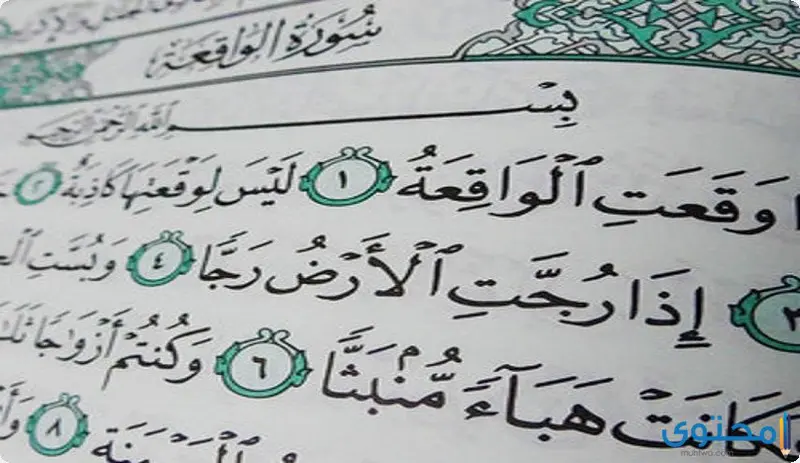 سُورَةُ الوَاقِعَة
بِسْمِ ٱللَّهِ ٱلرَّحْمَٰنِ ٱلرَّحِيمِ
وَقَعَتِ ٱلْوَاقِعَةُ ١ لَيْسَ لِوَقْعَتِهَا كَاذِبَةٌ ٢
٣ إِذَا رُجَّتِ ٱلْأَرْضُ رَجًّا ٤ وَبُسَّتِ
فَكَانَتْ هَبَآءً مُّنۢبَثًّا ٦ وَكُنتُمْ أَزْوَٰجًا
٨
محتوى
muhtwa.com